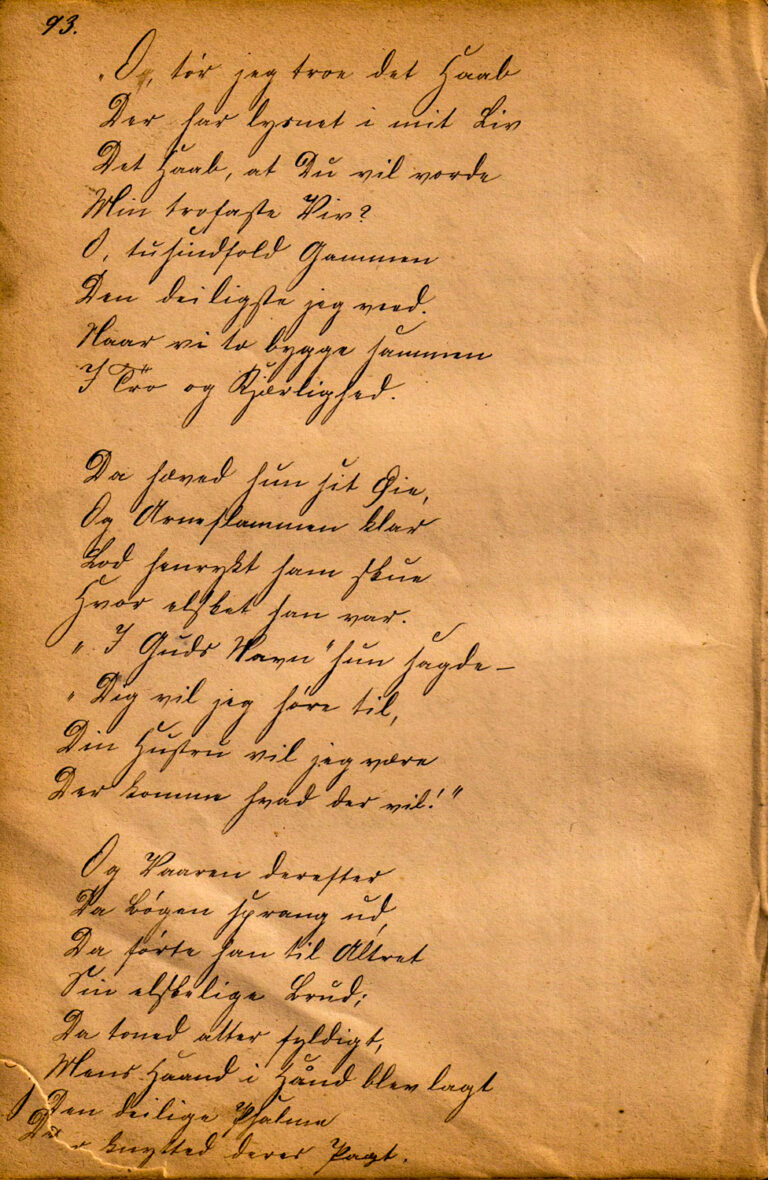 93.
„O, tör jeg troe det Haab
Der har lysnet i mit Liv
Det Haab, at Du vil vorde
Min trofaste Viv?
O, tusindfold Gammen
Den deiligste jeg veed.
Naar vi to bygge sammen
I Tro og Kjærlighed.
Da hæved hun sit Øie,
Og Arneflammen klar
Lod henrykt ham skue
Hvor elsket han var.
„I Guds Navn" hun sagde—
„Dig vil jeg höre til,
Din Hustru vil jeg være
Der komme hvad der vil!"
Og Vaaren derefter
Da Bøgen sprang ud,
Da förte han til Altret
Sin elskelige Brud;
Da toned atter fyldigt,
Mens Haand i Hånd blev lagt
Den deilige Psalme
knytted deres Pagt.